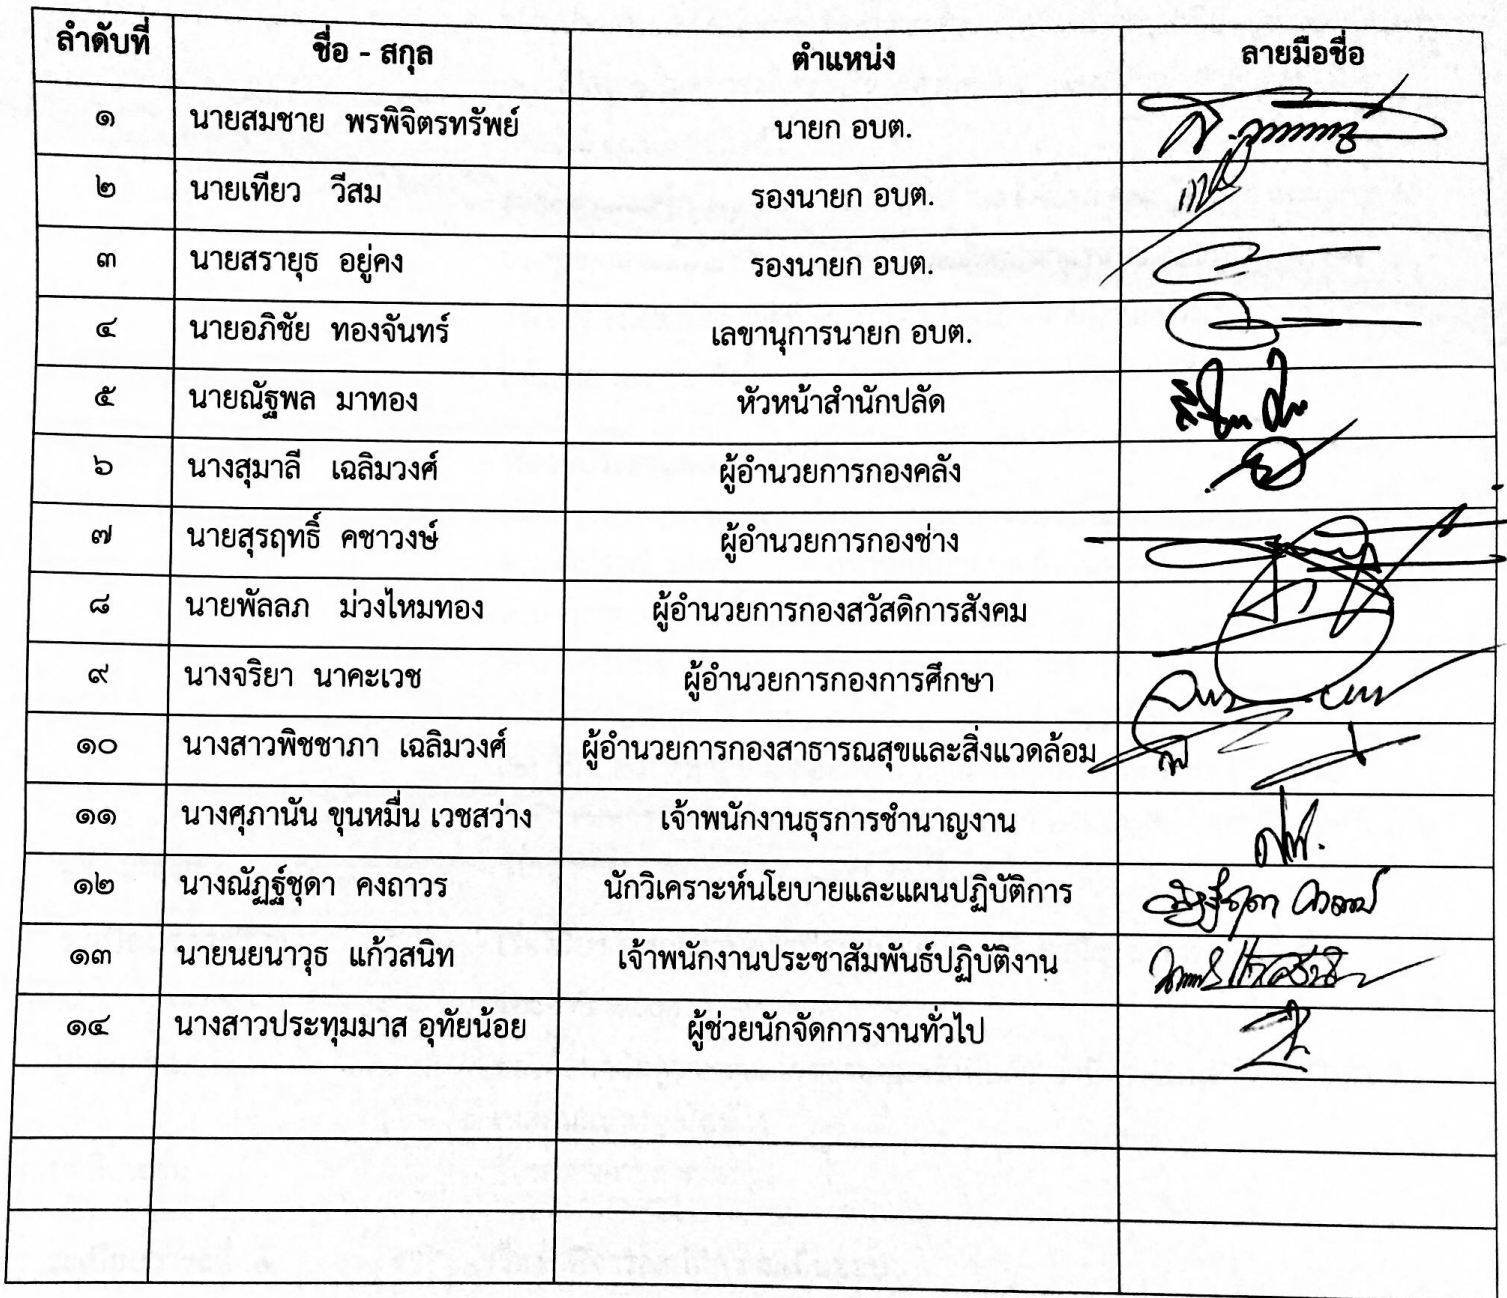 ลำดับที่ ชื่อ - สกุล ตำแหน่ง ลายมือชื่อ
๑ นายสมชาย พรพิจิตรทรัพย์ นายก อบต.
๒ นายเทียว วีสม รองนายก อบต.
๓ นายสรายุธ อยู่คง รองนายก อบต.
๔ นายอภิชัย ทองจันทร์ เลขานุการนายก อบต.
๕ นายณัฐพล มาทอง หัวหน้าสำนักปลัด
๖ นางสุมาลี เฉลิมวงศ์ ผู้อำนวยการกองคลัง
๗ นายสุรฤทธิ์ คชาวงษ์ ผู้อำนวยการกองช่าง
๘ นายพัลลภ ม่วงไหมทอง ผู้อำนวยการกองสวัสดิการสังคม
๙ นางจริยา นาคะเวช ผู้อำนวยการกองการศึกษา
๑๐ นางสาวพิชชาภา เฉลิมวงศ์ ผู้อำนวยการกองสาธารณสุขและสิ่งแวดล้อม
๑๑ นางศุภานัน ขุนหมื่น เวชสว่าง เจ้าพนักงานธุรการชำนาญงาน
๑๒ นางณัฏฐ์ชุดา คงถาวร นักวิเคราะห์นโยบายและแผนปฏิบัติการ
๑๓ นายนยนาวุธ แก้วสนิท เจ้าพนักงานประชาสัมพันธ์ปฏิบัติงาน
๑๔ นางสาวประทุมมาส อุทัยน้อย ผู้ช่วยนักจัดการงานทั่วไป